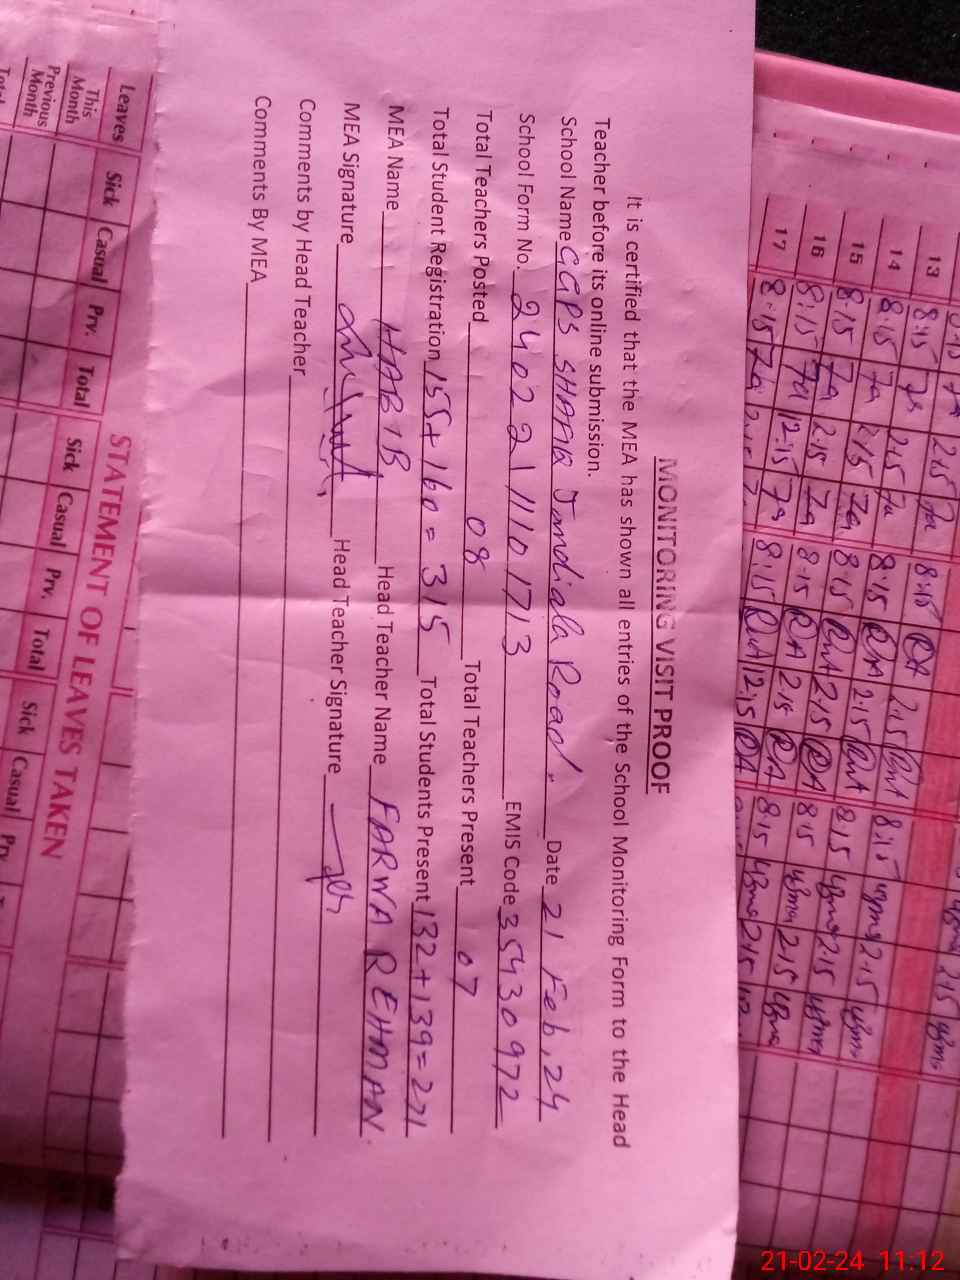 MONITORING VISIT PROOF
It is certified that the MEA has shown all entries of the School Monitoring Form to the Head
Teacher before its online submission.
School Name GGPS SHARIQ Jandiala Road. Date 21 Feb, 24
School Form No. 2402211101713 EMIS Code 35430972
Total Teachers Posted 08 Total Teachers Present 07
Total Student Registration 155+160=315 Total Students Present 132+139=271
MEA Name HABIB Head Teacher Name FARWA REHMAN
MEA Signature Head Teacher Signature
Comments by Head Teacher
Comments By MEA
13 8:15 2:15 8:15 RA 2:15 8:15 2:15
14 8:15 2:15 8:15 RA 2:15 8:15 2:15
15 8:15 2:15 8:15 2:15 RA 8:15 2:15
16 8:15 12:15 8:15 RA 2:15 RA 8:15 2:15
17 8:15 8:15 12:15 RA 8:15 2:15
STATEMENT OF LEAVES TAKEN
Leaves Sick Casual Prv. Total Sick Casual Prv. Total Sick Casual
This Month
Previous Month
Total
21-02-24 11:12